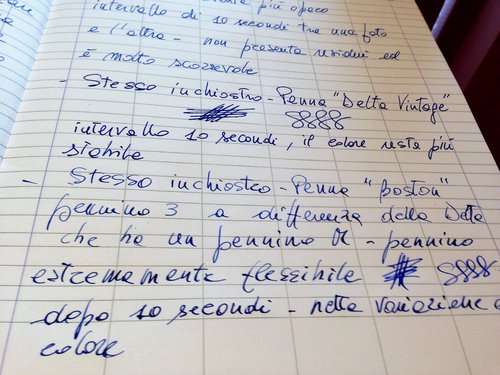 più opaco
intervallo di 10 secondi tra una foto
e l'altra - non presenta residui ed
è molto scorrevole
- Stesso inchiostro - Penna "Delta Vintage"
8888
intervallo 10 secondi, il colore resta più
stabile
- Stesso inchiostro - Penna "Boston"
pennino 3 a differenza della Delta
che ha un pennino M - pennino
estremamente flessibile # 8888
dopo 10 secondi - netta variazione
colore